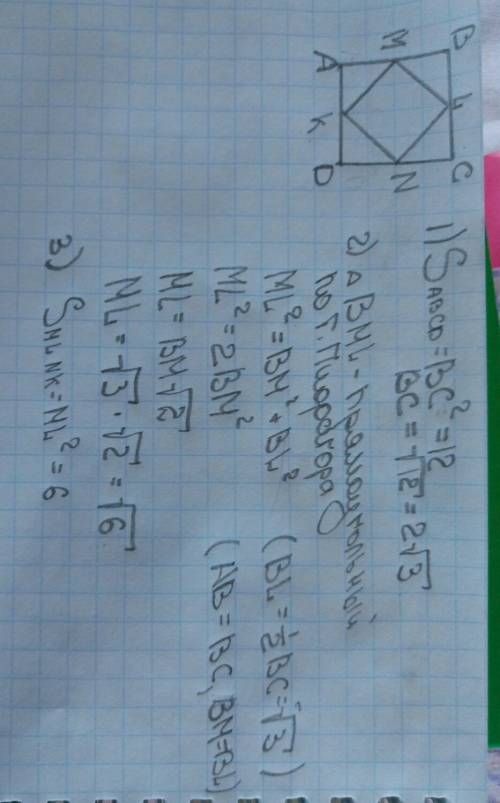 B
L
C
M
N
A
K
D
1) S ABCD = BC² = 12
BC = √12 = 2√3
2) △ BML - прямоугольный
по т. Пифагора
ML² = BM² + BL² (BL = ½ BC = √3)
ML² = 2BM² (AB = BC, BM = BL)
ML = BM√2
ML = √3 · √2 = √6
3) S MLNK = ML² = 6